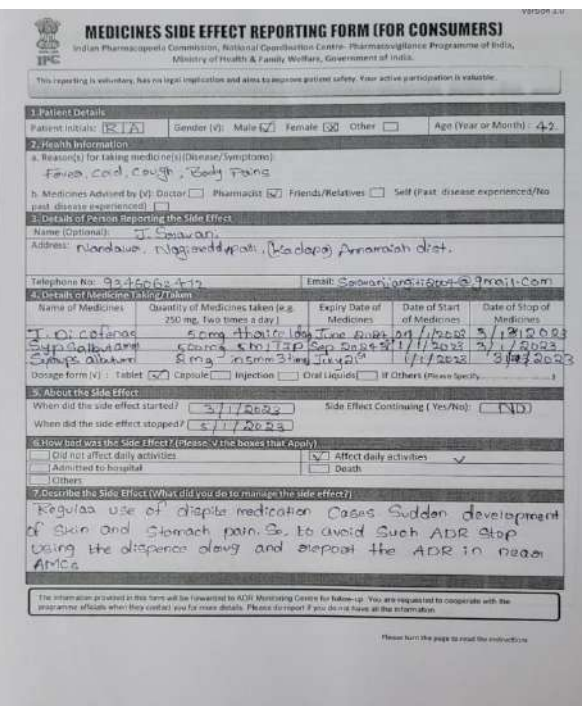 Version 1.0
MEDICINES SIDE EFFECT REPORTING FORM (FOR CONSUMERS)
IPC
Indian Pharmacopoeia Commission, National Coordination Centre- Pharmacovigilance Programme of India,
Ministry of Health & Family Welfare, Government of India.
This reporting is voluntary, has no legal implication and aims to improve patient safety. Your active participation is valuable.
1.Patient Details
Patient Initials: RIA Gender (√): Male ☑ Female ☒ Other ☐ Age (Year or Month) : 42.
2. Health Information
a. Reason(s) for taking medicine(s)(Disease/Symptoms):
Fever, Cold, Cough, Body Pains
b. Medicines Advised by (√): Doctor ☐ Pharmacist ☑ Friends/Relatives ☐ Self (Past disease experienced/No
past disease experienced) ☐
3. Details of Person Reporting the Side Effect
Name (Optional): J. Saravan.
Address: Nandalur, (Kadapa) Annamaiah dist.
Telephone No: Email:
4. Details of Medicine Taking/Taken
Name of Medicines Quantity of Medicines taken (e.g. 250 mg, Two times a day) Expiry Date of Medicines Date of Start of Medicines Date of Stop of Medicines
50mg June 1/2023
500mg 5ml Sep 1/1/2023 3/1/2023
2mg July 1/1/2023
Dosage form (√) : Tablet ☑ Capsule ☐ Injection ☐ Oral Liquids ☐ If Others (Please Specify )
5. About the Side Effect
When did the side effect started? 3/1/2023 Side Effect Continuing (Yes/No): NO
When did the side effect stopped? 5/1/2023
6.How bad was the Side Effect? (Please √ the boxes that Apply)
☐ Did not affect daily activities ☑ Affect daily activities ✓
☐ Admitted to hospital ☐ Death
☐ Others
7.Describe the Side Effect (What did you do to manage the side effect?)
Regular use of dispite medication Cases Sudden development
of Skin and Stomach pain. So, to avoid Such ADR Stop
using the dispence drug and report the ADR in near
AMCs
The information provided in this form will be forwarded to ADR Monitoring Centre for follow-up. You are requested to cooperate with the
programme officials when they contact you for more details. Please do report if you do not have all the information
Please turn the page to read the instructions